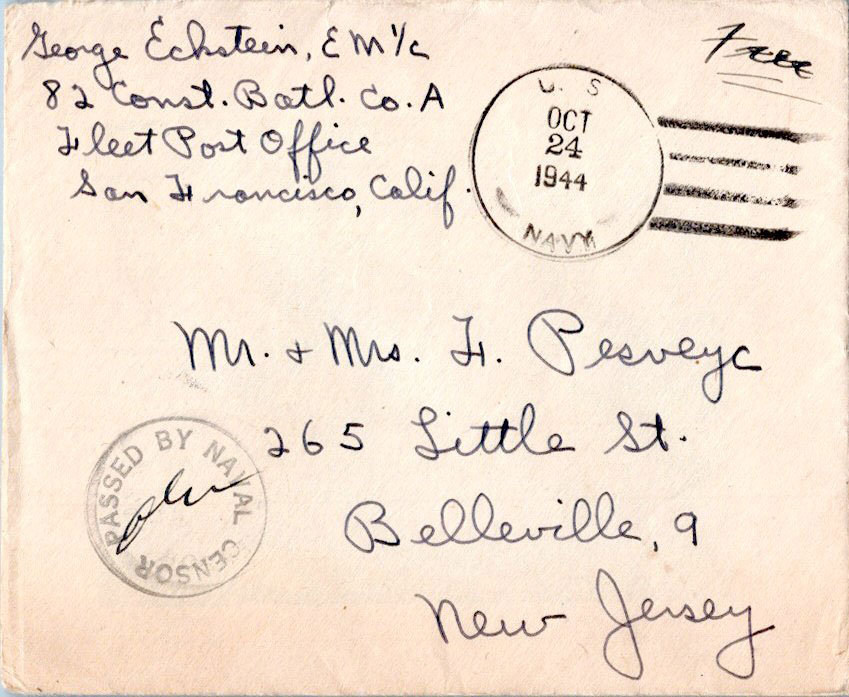 George Eckstein, EM 1/c
82 Const. Batl. Co. A
Fleet Post Office
San Francisco, Calif.
Free
U. S.
OCT
24
1944
NAVY
Mr. + Mrs. F. Pesveyc
265 Little St.
Belleville, 9
New Jersey
PASSED BY NAVAL CENSOR